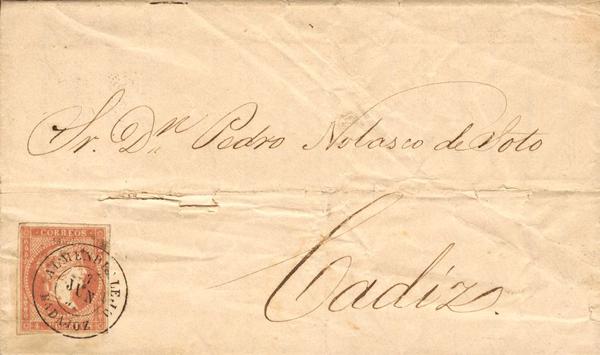 Sr. Dn. Pedro Nolasco de Soto
Cadiz.
CORREOS
ALMENDRALEJO
JUN
BADAJOZ